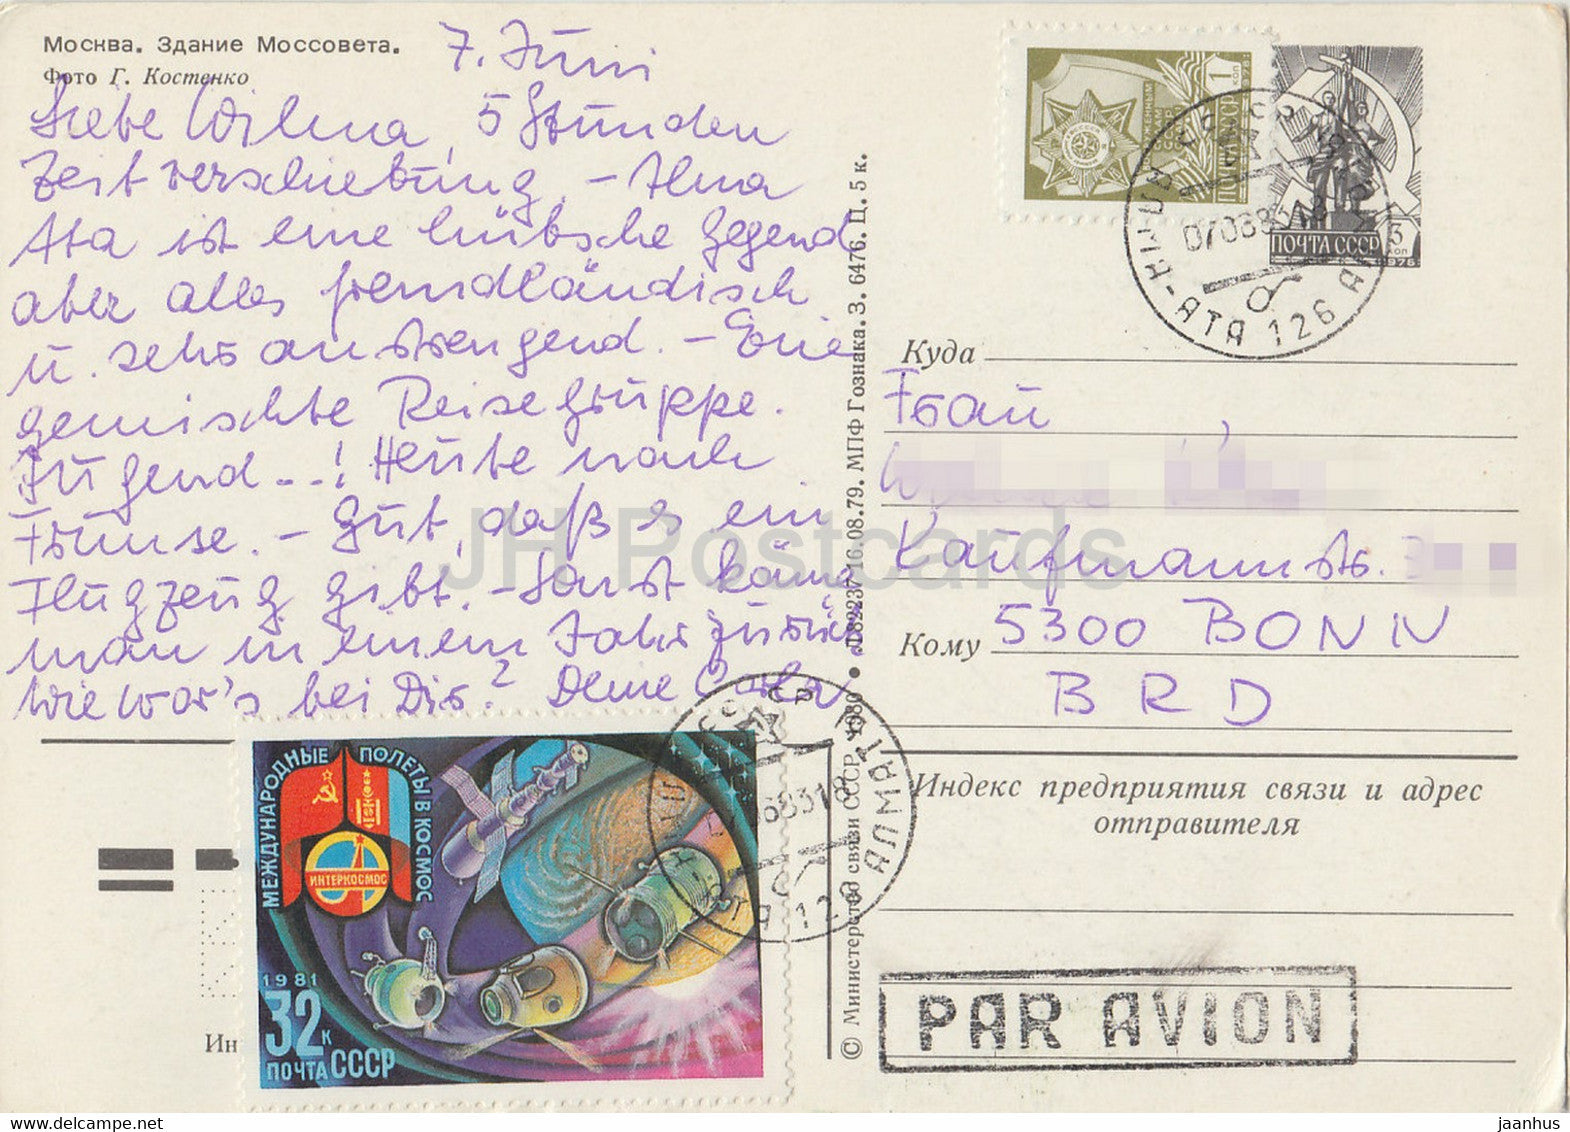 Москва. Здание Моссовета.
Фото Г. Костенко
7. Juni
Liebe Wilma, 5 Stunden
Zeitverschiebung. – Alma
Ata ist eine hübsche Gegend
aber alles fremdländisch
u. sehr anstrengend. – Eine
gemischte Reisegruppe.
Jugend --! Heute nach
Frunse. – Gut, daß es ein
Flugzeug gibt. – Sonst käme
man in einem Jahr zurück
Wie war's bei Dir? Deine Carla
МЕЖДУНАРОДНЫЕ ПОЛЕТЫ В КОСМОС
ИНТЕРКОСМОС
1981
32 к
ПОЧТА СССР
АЛМА
АТА 126
Ин
© Министерство связи СССР. 1980 • 16.08.79. МПФ Гознака. З. 6476. Ц. 5 к.
1 коп
ПОЧТА СССР
ПОЧТА СССР
3 коп
1976
СССР
АТА 126
Куда
Frau
Kaufmannstr. 3
Кому
5300 BONN
BRD
Индекс предприятия связи и адрес
отправителя
PAR AVION
JH Postcards
www.delcampe.net
jaanhus